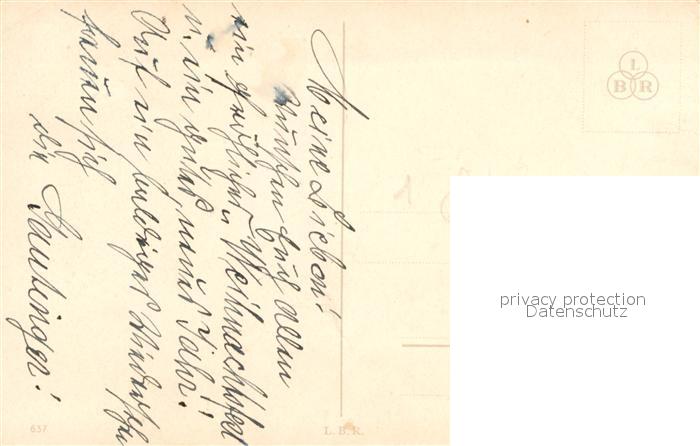 Meine Lieben!
wünschen Euch allen
ein fröhliches Weihnachtsfest
u. ein gutes neues Jahr!
Auf ein baldiges Wiedersehn
freuen sich
die Gautinger!
L B R
637
L. B. R.
privacy protection
Datenschutz